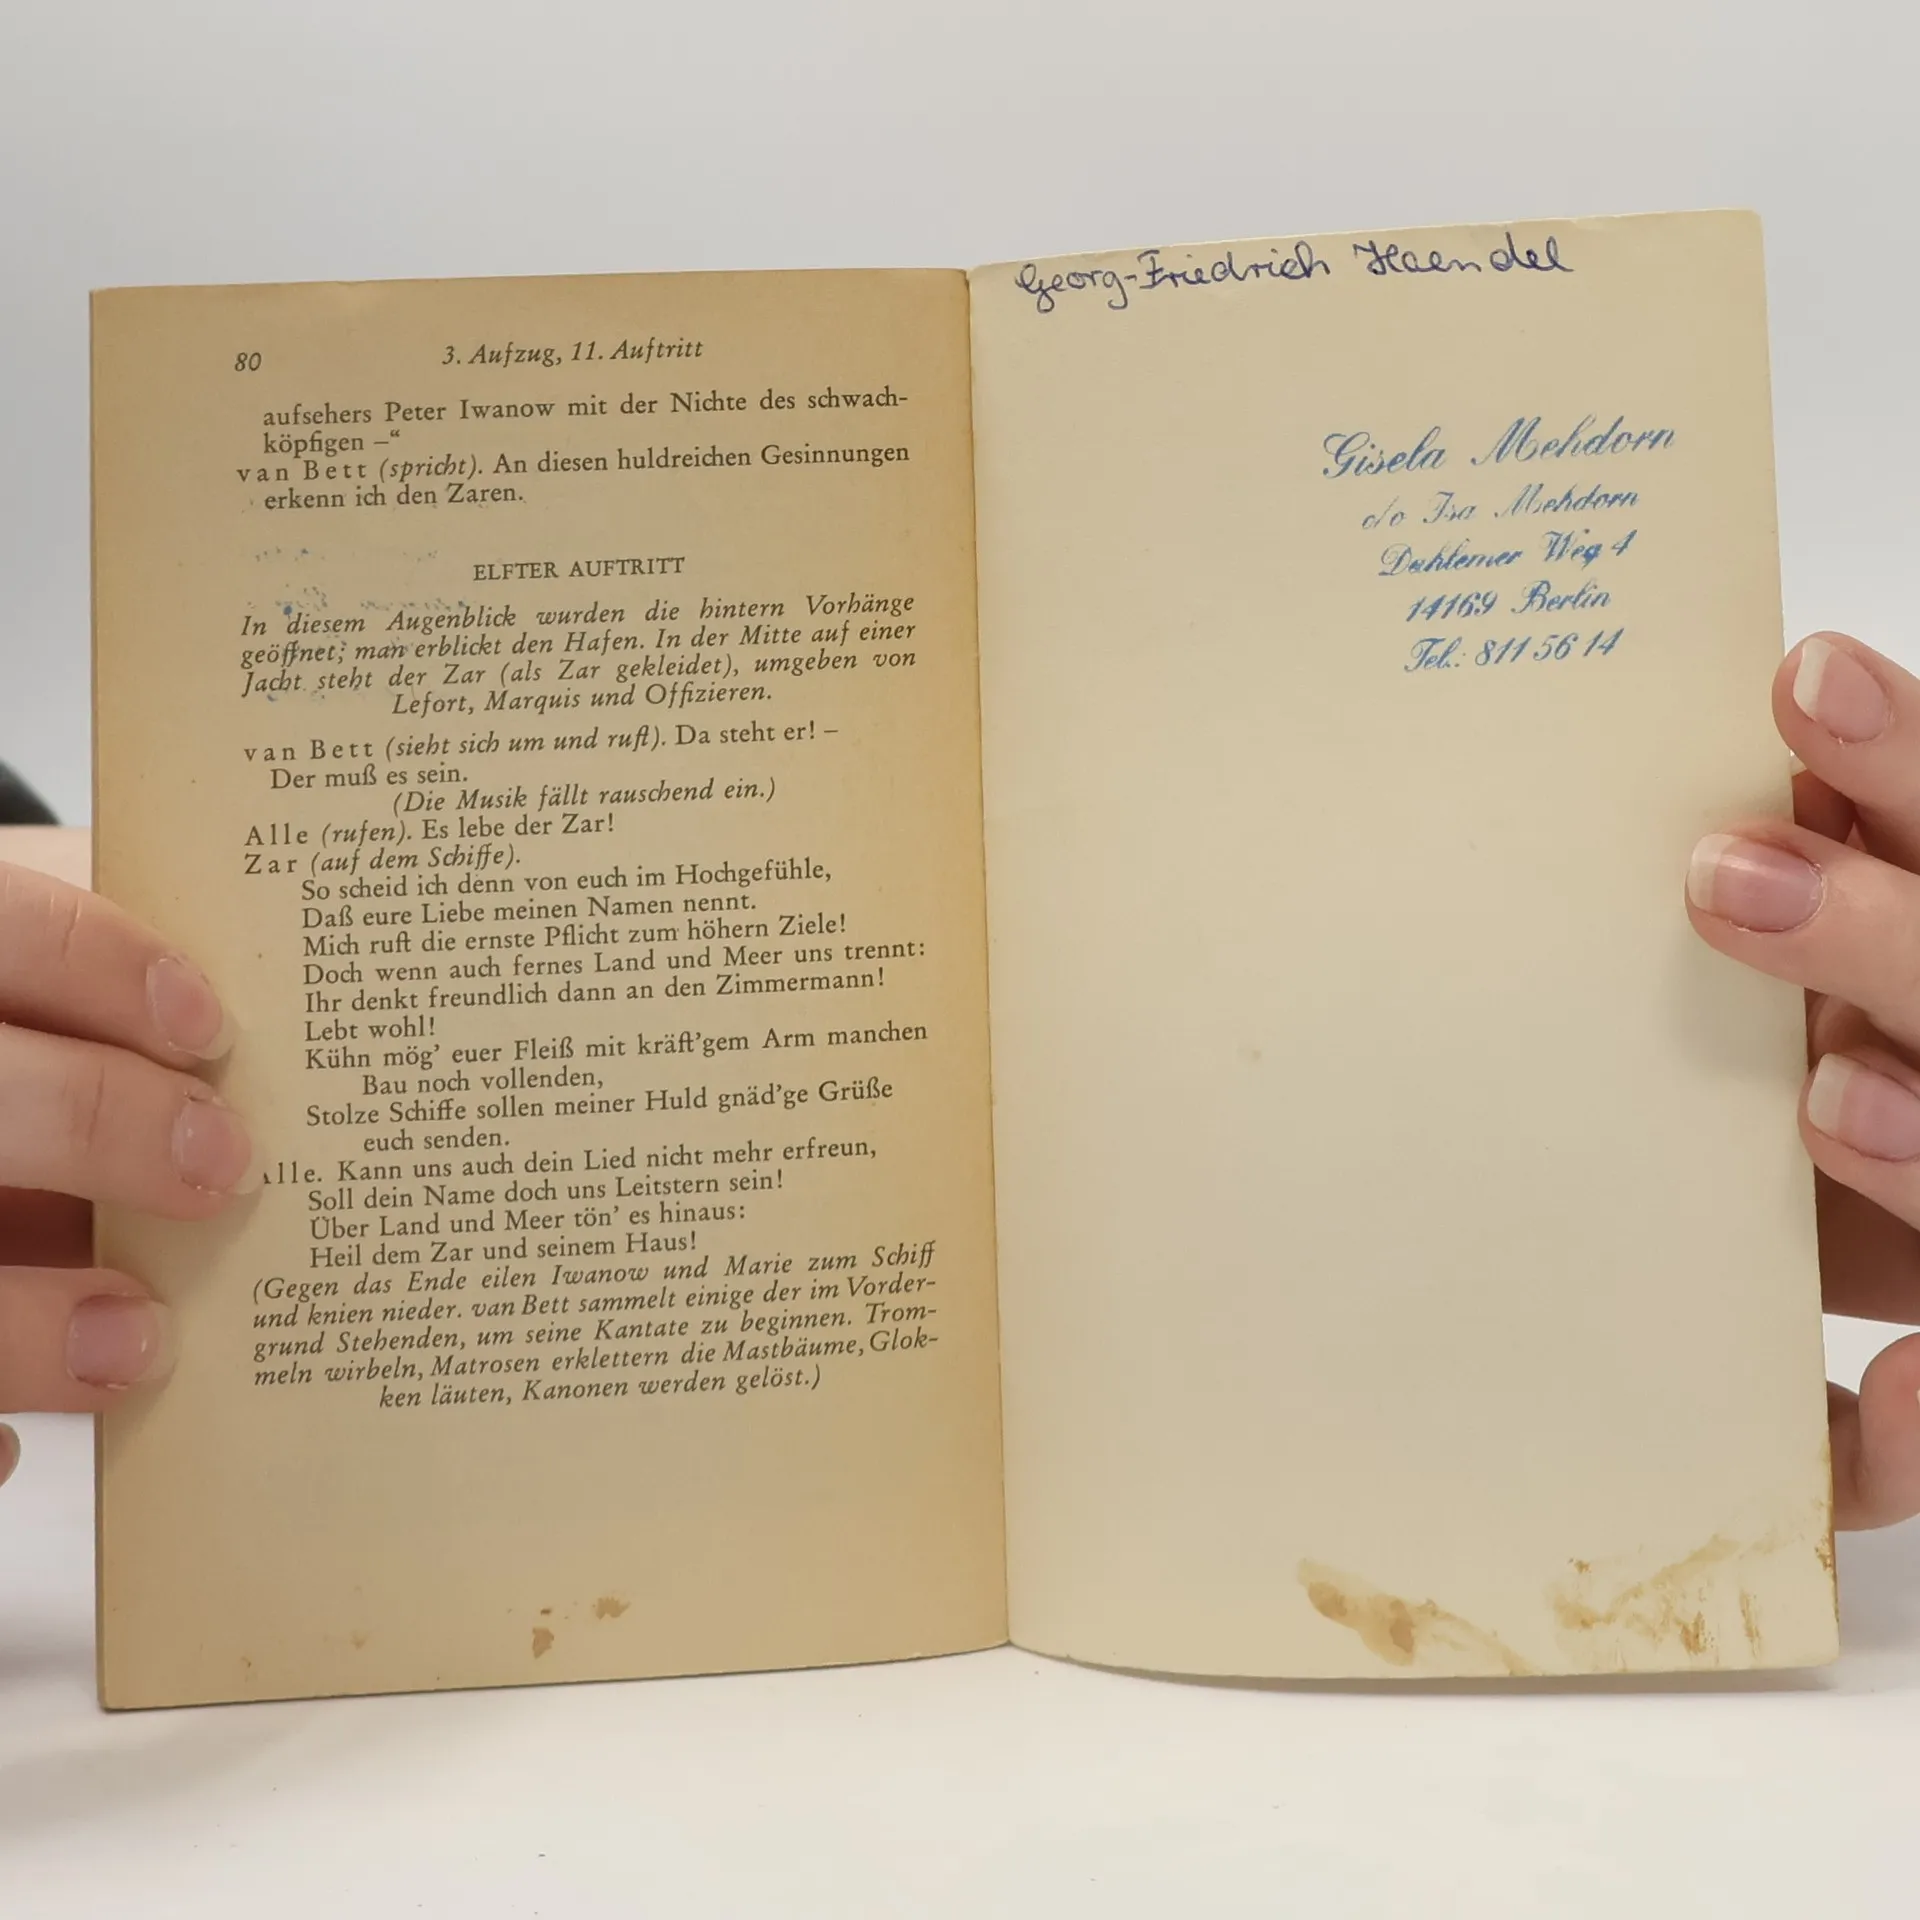 80
3. Aufzug, 11. Auftritt
aufsehers Peter Iwanow mit der Nichte des schwach-
köpfigen –“
van Bett (spricht). An diesen huldreichen Gesinnungen
erkenn ich den Zaren.
ELFTER AUFTRITT
In diesem Augenblick wurden die hintern Vorhänge
geöffnet; man erblickt den Hafen. In der Mitte auf einer
Jacht steht der Zar (als Zar gekleidet), umgeben von
Lefort, Marquis und Offizieren.
van Bett (sieht sich um und ruft). Da steht er! –
Der muß es sein.
(Die Musik fällt rauschend ein.)
Alle (rufen). Es lebe der Zar!
Zar (auf dem Schiffe).
So scheid ich denn von euch im Hochgefühle,
Daß eure Liebe meinen Namen nennt.
Mich ruft die ernste Pflicht zum höhern Ziele!
Doch wenn auch fernes Land und Meer uns trennt:
Ihr denkt freundlich dann an den Zimmermann!
Lebt wohl!
Kühn mög’ euer Fleiß mit kräft’gem Arm manchen
Bau noch vollenden,
Stolze Schiffe sollen meiner Huld gnäd’ge Grüße
euch senden.
Alle. Kann uns auch dein Lied nicht mehr erfreun,
Soll dein Name doch uns Leitstern sein!
Über Land und Meer tön’ es hinaus:
Heil dem Zar und seinem Haus!
(Gegen das Ende eilen Iwanow und Marie zum Schiff
und knien nieder. van Bett sammelt einige der im Vorder-
grund Stehenden, um seine Kantate zu beginnen. Trom-
meln wirbeln, Matrosen erklettern die Mastbäume, Glok-
ken läuten, Kanonen werden gelöst.)
Georg-Friedrich Haendel
Gisela Mehdorn
c/o Isa Mehdorn
Dahlemer Weg 4
14169 Berlin
Tel.: 811 56 14